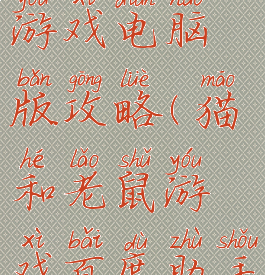 yóu xì diàn nǎo
游戏电脑
bǎn gōng lüè māo
版攻略(猫
hé lǎo shǔ yóu
和老鼠游
xì bǎi dù zhù shǒu
戏百度助手